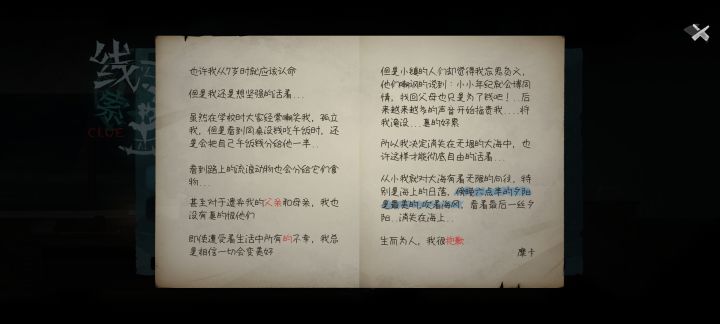 线索
CLUE
也许我从7岁时就应该认命
但是我还是想坚强的活着...
虽然在学校时大家经常嘲笑我，孤立
我，但是看到同桌没钱吃午饭时，还
是会把自己午饭钱分给他一半..
看到路上的流浪动物也会分给它们食
物...
甚至对于遗弃我的父亲和母亲，我也
没有真的恨他们
即使遭受着生活中所有的不幸，我总
是相信一切会变美好
但是小镇的人们却觉得我忘恩负义，
他们嘲讽的说到：小小年纪就会博同
情，找回父母也只是为了钱吧！..后
来越来越多的声音开始指责我....将
我淹没...真的好累
所以我决定消失在无垠的大海中，也
许这样才能彻底自由的活着...
从小我就对大海有着无限的向往，特
别是海上的日落，傍晚六点半的夕阳
是最美的，吹着海风，看着最后一丝夕
阳..消失在海上..
生而为人，我很抱歉
摩卡